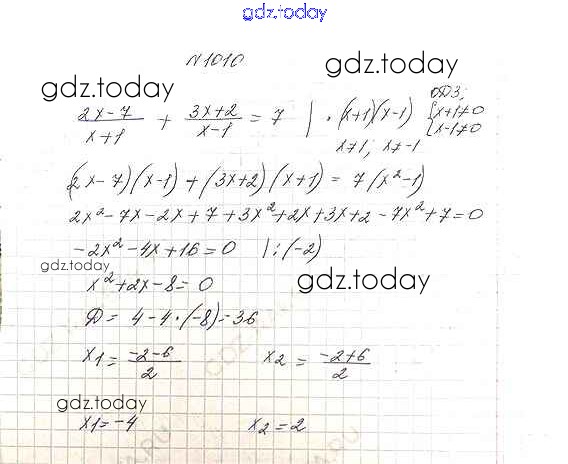 gdz.today
N 1010
gdz.today gdz.today
(2x-7)/(x+1) + (3x+2)/(x-1) = 7 | · (x+1)(x-1) ОДЗ: { x+1≠0
x-1≠0
x≠1; x≠-1
(2x-7)(x-1) + (3x+2)(x+1) = 7(x²-1)
2x²-7x-2x+7+3x²+2x+3x+2-7x²+7=0
-2x²-4x+16=0 | :(-2)
gdz.today
x²+2x-8=0
gdz.today
D = 4-4·(-8)=36
x₁ = (-2-6)/2 x₂ = (-2+6)/2
gdz.today
x₁=-4 x₂=2